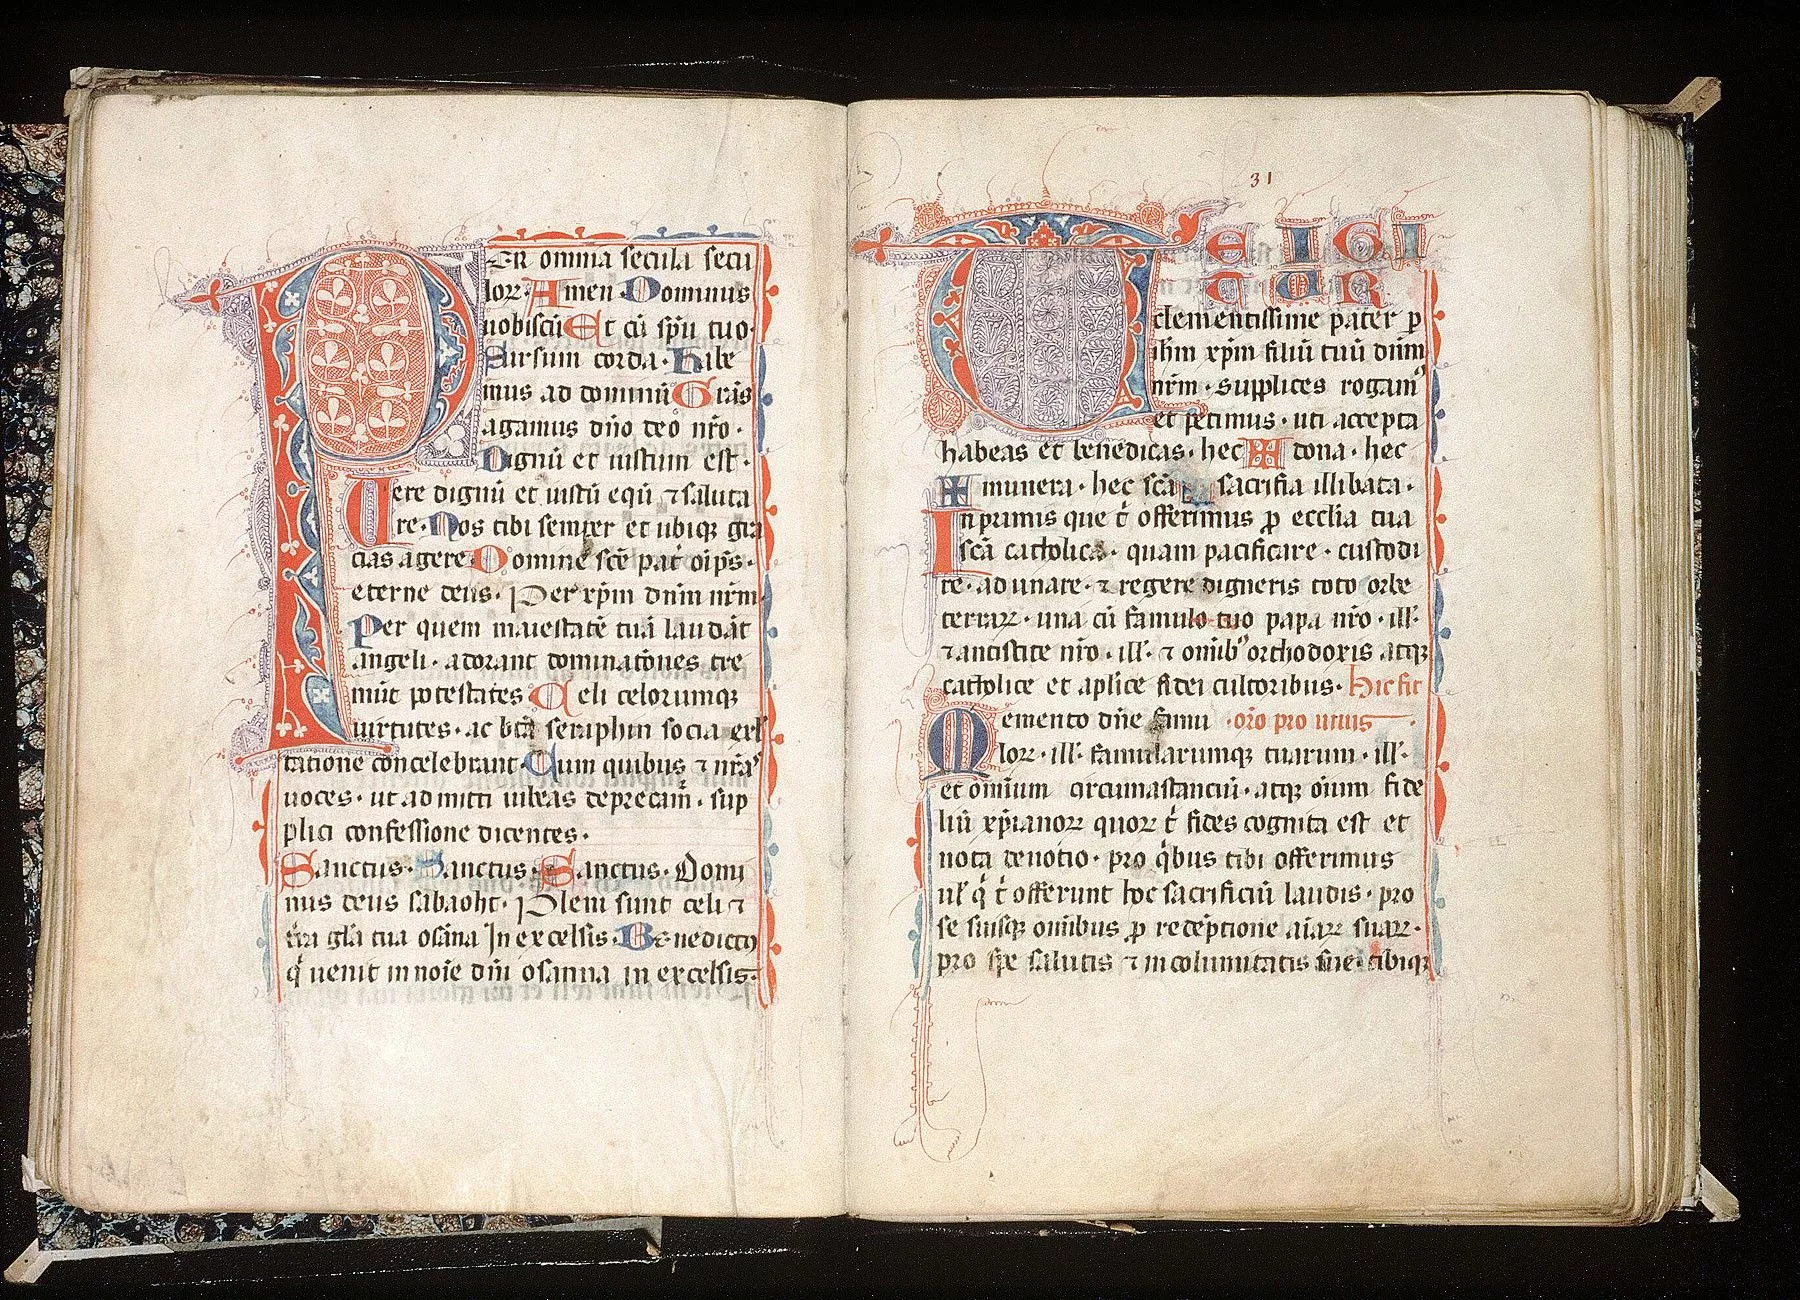 PER omnia secula secu
lorꝝ· Amen Dominus
uobiscū Et cū spū tuo·
Sursum corda· Habe
mus ad dominū Grās
agamus dño deo nr̄o·
Dignū et iustum est·
Uere dignū et iustū equū ⁊ saluta
re· Nos tibi semper et ubiqꝫ gra
cias agere Domine sc̄e pat̄ oīps·
eterne deus· Per xp̄m dn̄m nr̄m·
Per quem maiestatē tuā laudāt
angeli· adorant dominatōnes tre
mūt potestates Celi celorumqꝫ
uirtutes· ac bt̄a seraphin socia exl
tatione concelebrant· Cum quibus ⁊ nr̄as
uoces· ut ad mitti iubeas deprecam̄· sup
plici confessione dicentes·
Sanctus· Sanctus· Sanctus· Domi
nus deus sabaoht· Pleni sunt celi ⁊
tr̄a gl̄a tua osāna In excelsis· Benedictꝰ
q̇ uenit in noīe dn̄i osanna in excelsis·
31
TE IGI
TUR
clementissime pater ꝑ
ihm̄ xp̄m filiū tuū dn̄m
nr̄m· supplices rogamꝰ
et petimus· uti accepta
habeas et benedicas· hec ✠ dona· hec
✠ munera· hec sc̄a ✠ sacrificia illibata·
In primis que t̄ offerimus ꝓ eccl̄ia tua
sc̄a catholica· quam pacificare· custodi
re· ad unare· ⁊ regere digneris toto orbe
terrarꝝ· una cū famulo tuo papa nr̄o· ill·
⁊ antistite nr̄o· ill· ⁊ omībꝰ orthodoxis atqꝫ
catholice et aplīce fidei cultoribus· Hic fit
Memento dn̄e famu· orō pro uiuis·
lorꝝ· ill· famularumqꝫ tuarum· ill·
et omnium circumastanciū· atqꝫ oīum fide
liū xp̄ianorꝝ quorꝝ t̄ fides cognita est et
nota deuotio· pro q̇bus tibi offerimus
ul̄ q̇ t̄ offerunt hoc sacrificiū laudis· pro
se suisqꝫ omībus ꝓ redēptione aīarꝝ suarꝝ·
pro spe salutis ⁊ incolumitatis sue· tibiqꝫ